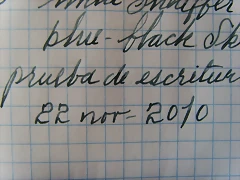 Sheaffer
blue-black Sk
prueba de escritur
22 nov- 2010